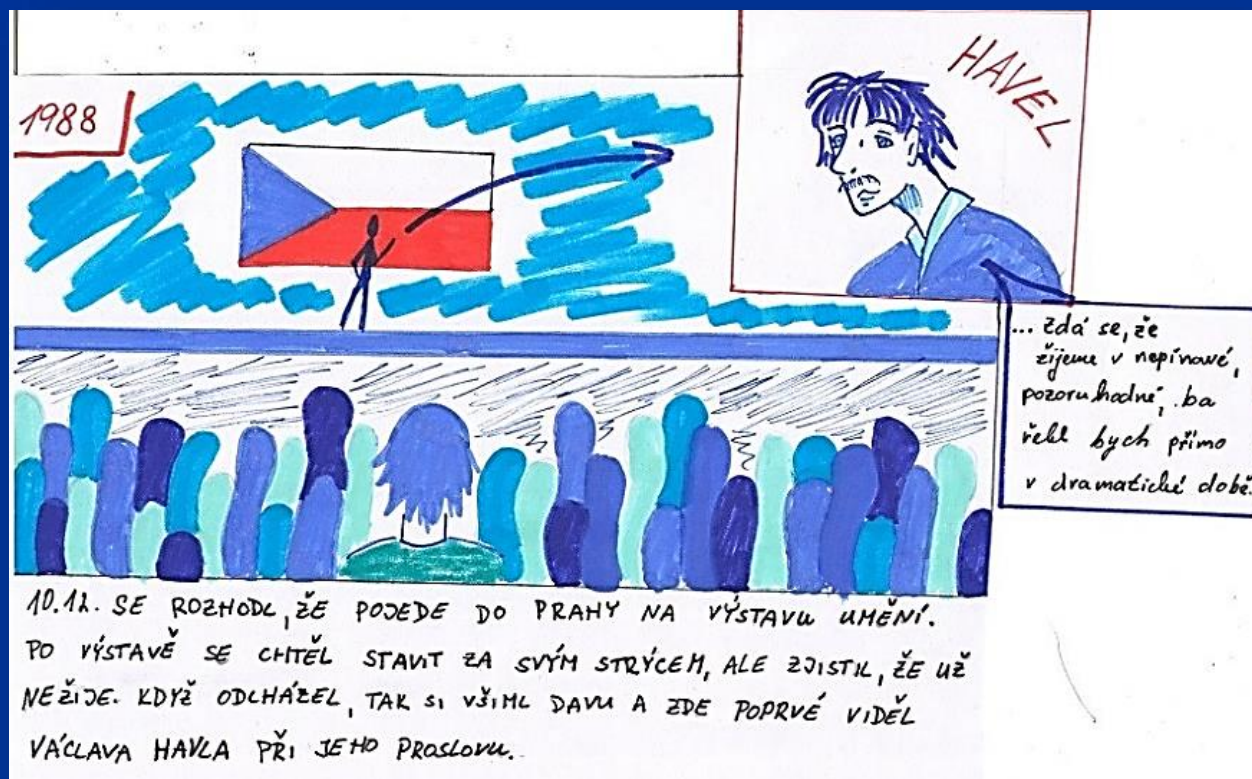 1988
HAVEL
... zdá se, že
žijeme v nepínavé,
pozoruhodné, ba
řekl bych přímo
v dramatické době.
10.12. SE ROZHODL, ŽE POJEDE DO PRAHY NA VÝSTAVU UMĚNÍ.
PO VÝSTAVĚ SE CHTĚL STAVIT ZA SVÝM STRÝCEM, ALE ZJISTIL, ŽE UŽ
NEŽIJE. KDYŽ ODCHÁZEL, TAK SI VŠIML DAVU A ZDE POPRVÉ VIDĚL
VÁCLAVA HAVLA PŘI JEHO PROSLOVU.